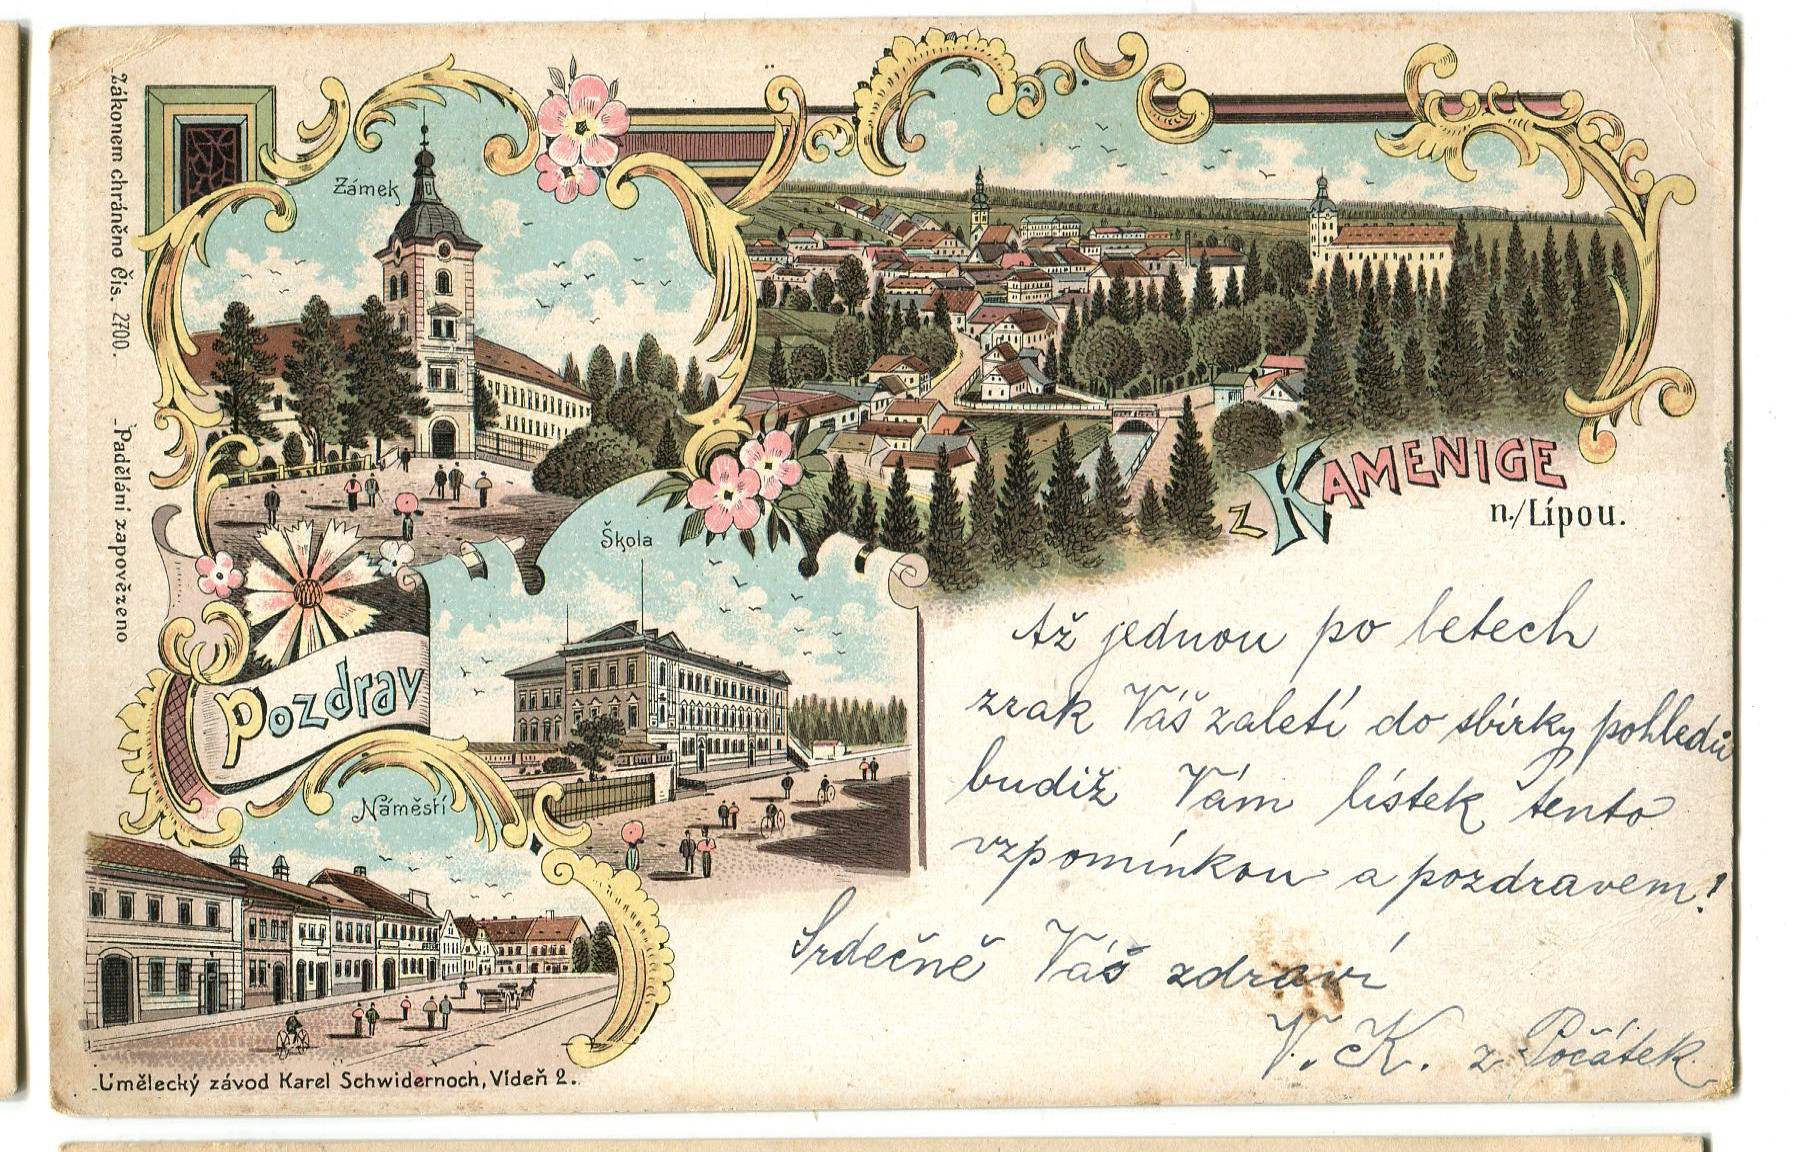 Zákonem chráněno čis. 2700.
Padělání zapovězeno
Zámek
Škola
Pozdrav
Náměstí
z KAMENIGE
n./Lípou.
Až jednou po letech
zrak Váš zaletí do sbírky pohledů
budiž Vám lístek tento
vzpomínkou a pozdravem!
Srdečně Váš zdraví
V. K. z Počátek.
Umělecký závod Karel Schwidernoch, Vídeň 2.